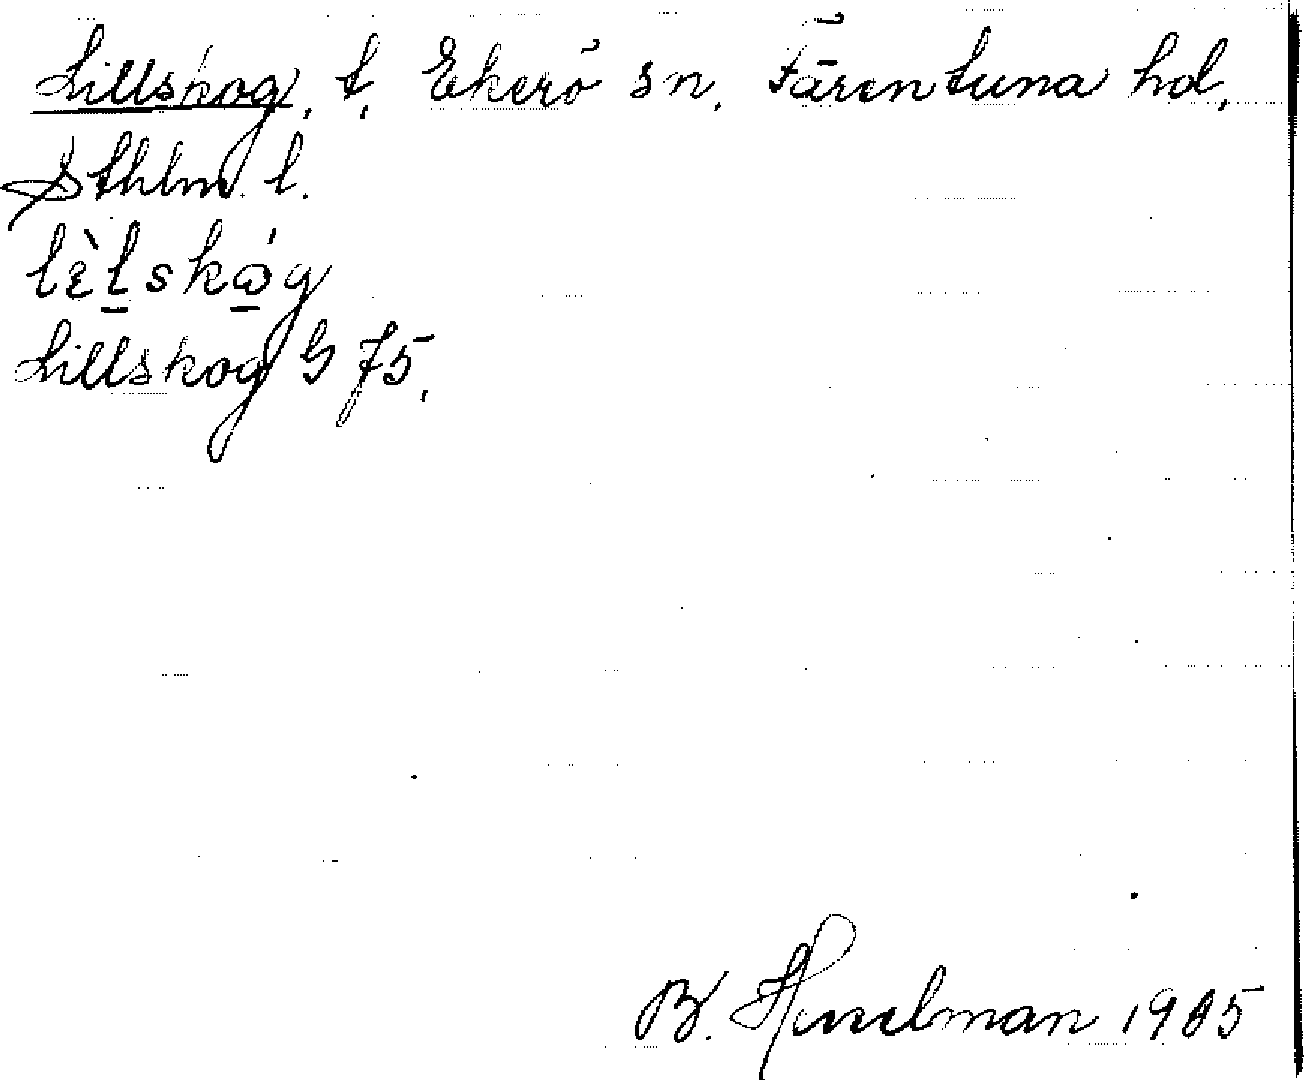 Lillskog, t, Ekerö sn, Färentuna hd,
Sthlm l.
lὲl̠skώ̠g
Lillskog G 75,
B. Hesselman 1905